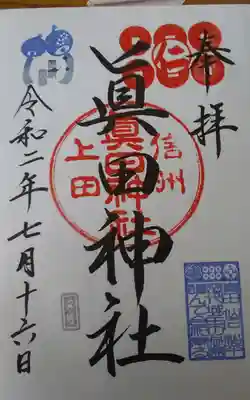 奉拝
眞田神社
信州
上田
眞田神社
令和二年七月十六日